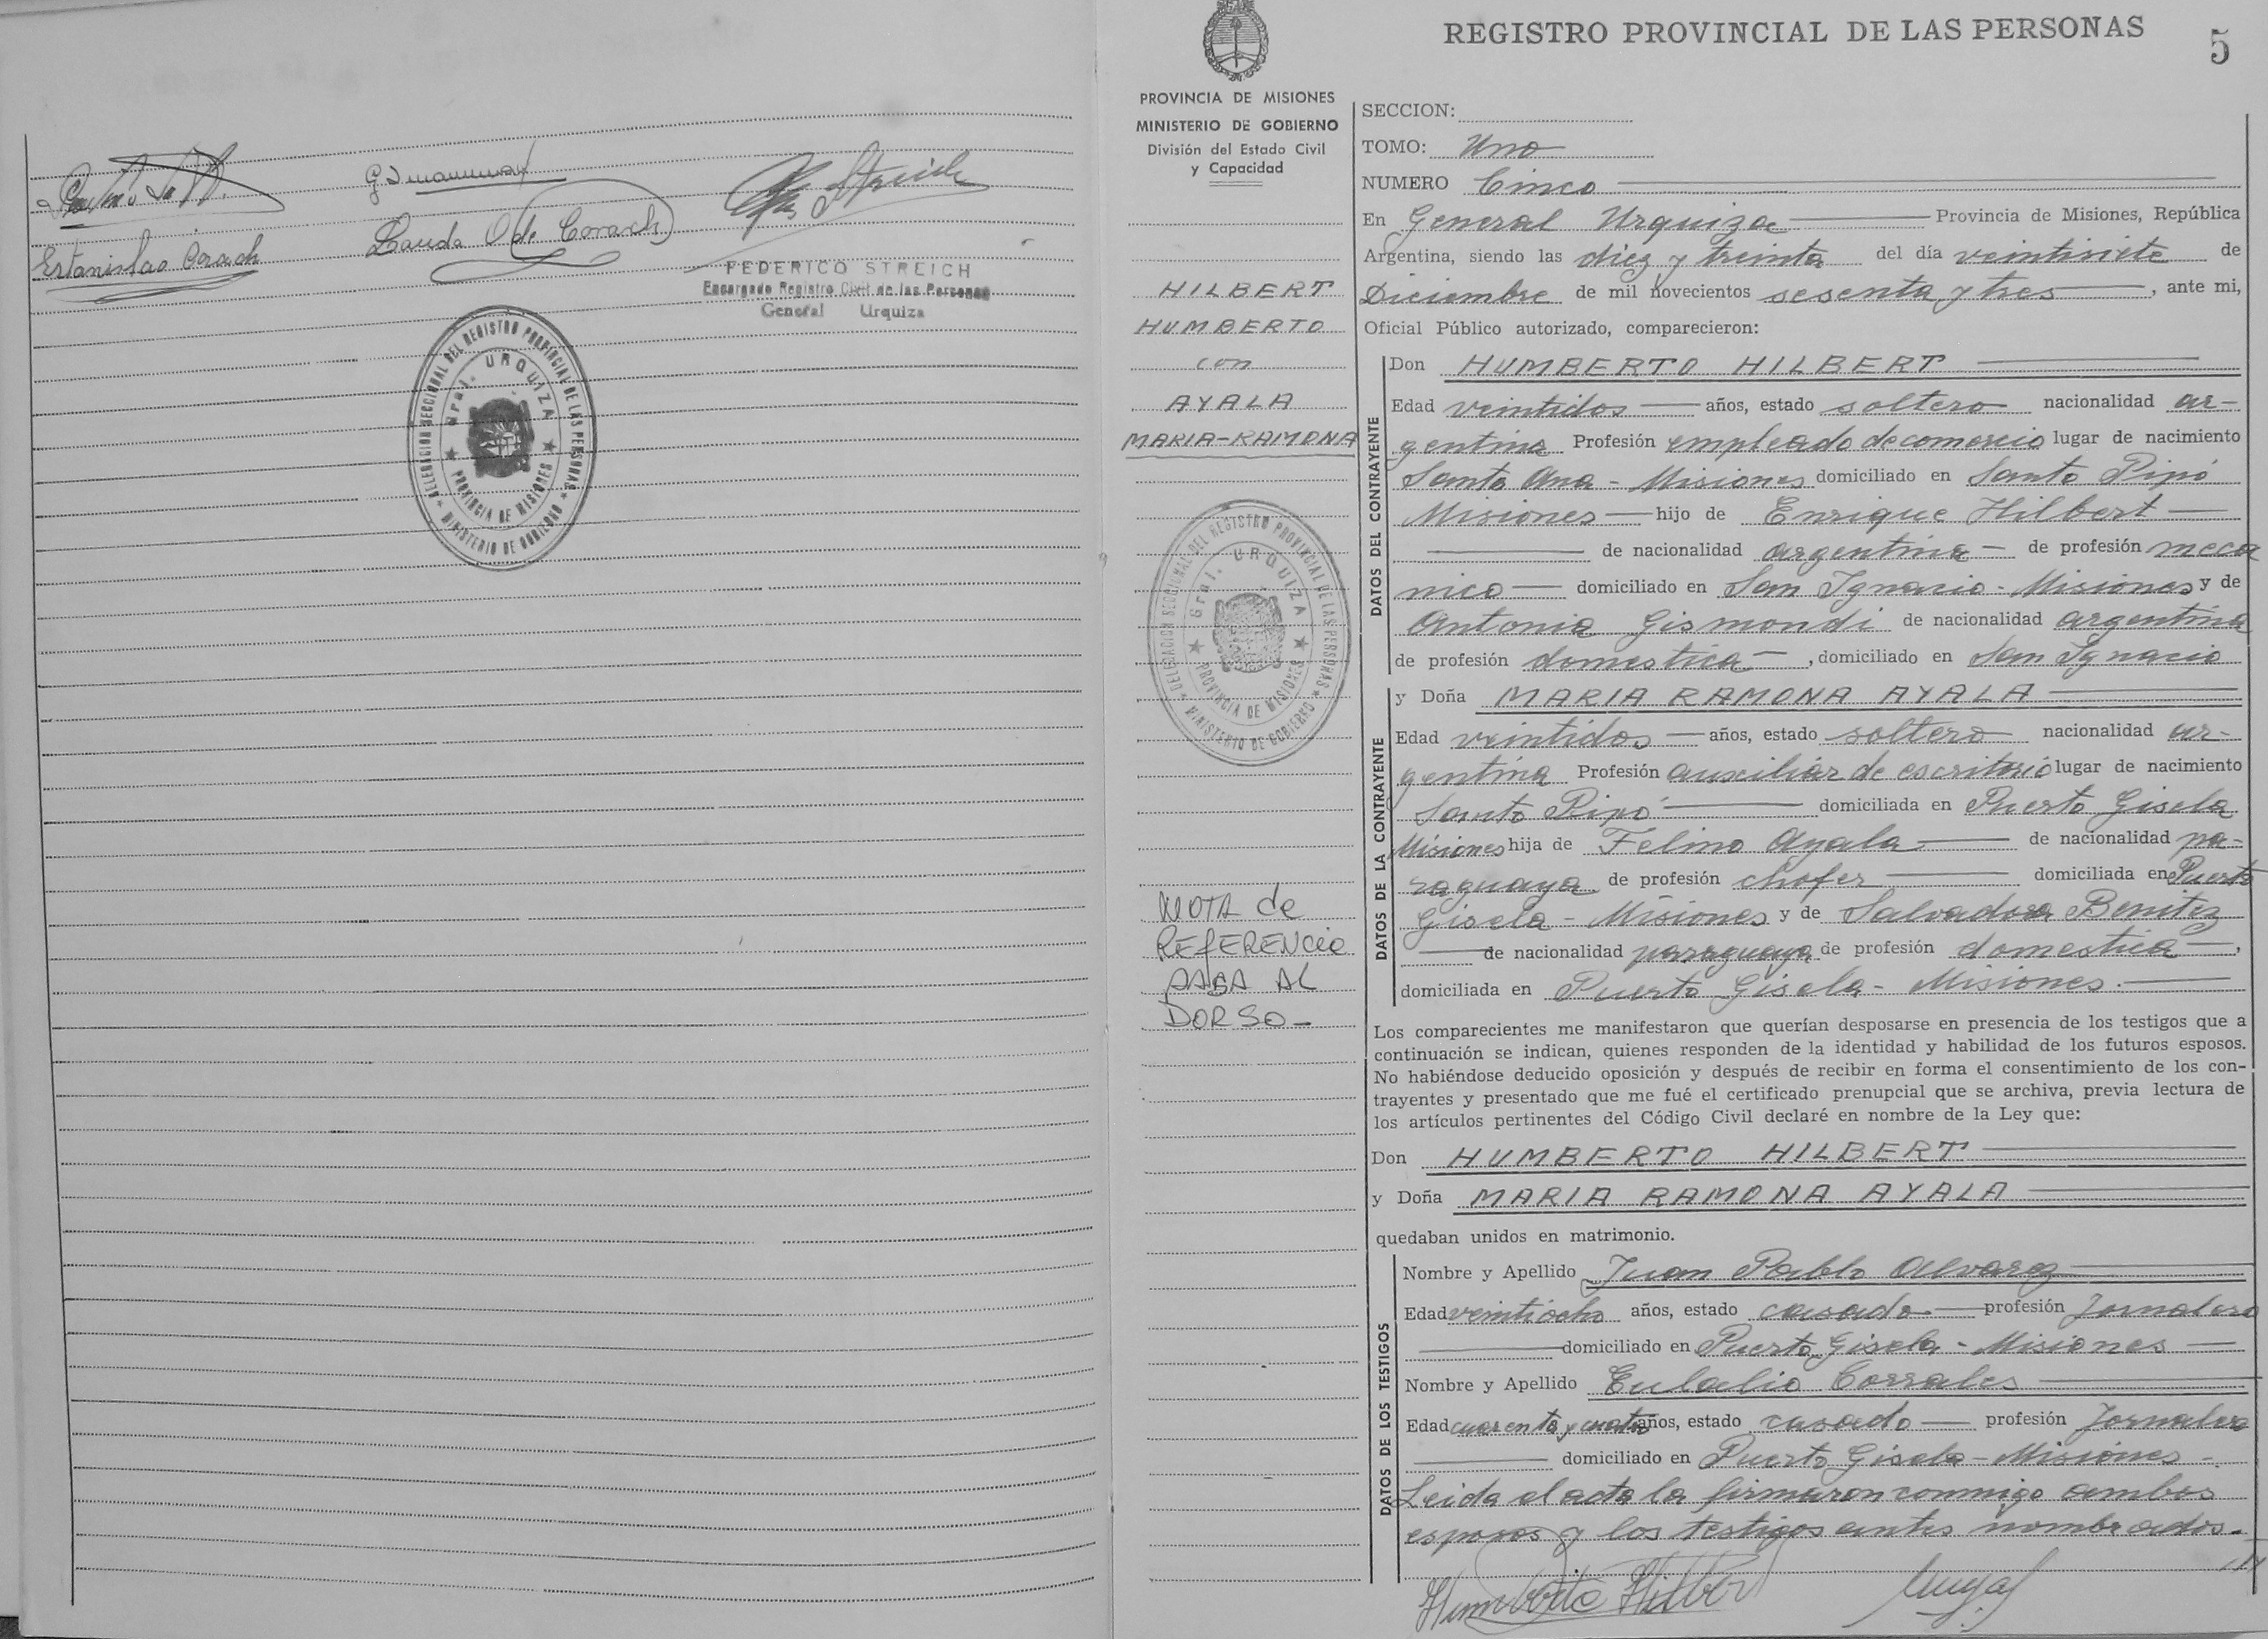 Estanislao
de
Streich
FEDERICO STREICH
Encargado Registro Civil de las Personas
General Urquiza
DELEGACION SECCIONAL DEL REGISTRO PROVINCIAL DE LAS PERSONAS
★ MINISTERIO DE GOBIERNO ★
Gral. URQUIZA
★ PROVINCIA DE MISIONES ★
REGISTRO PROVINCIAL DE LAS PERSONAS
5
PROVINCIA DE MISIONES
MINISTERIO DE GOBIERNO
División del Estado Civil
y Capacidad
HILBERT
HUMBERTO
con
AYALA
MARIA-RAMONA
DELEGACION SECCIONAL DEL REGISTRO PROVINCIAL DE LAS PERSONAS
★ MINISTERIO DE GOBIERNO ★
Gral. URQUIZA
★ PROVINCIA DE MISIONES ★
NOTA de
REFERENCIA
PASA AL
DORSO-
SECCION:
TOMO: Uno
NUMERO Cinco
En General Urquiza Provincia de Misiones, República
Argentina, siendo las diez y treinta del día veintisiete de
Diciembre de mil novecientos sesenta y tres, ante mi,
Oficial Público autorizado, comparecieron:
DATOS DEL CONTRAYENTE
Don HUMBERTO HILBERT
Edad veintidos años, estado soltero nacionalidad ar-
gentina Profesión empleado de comercio lugar de nacimiento
Santa Ana - Misiones domiciliado en Santo Pipó
Misiones hijo de Enrique Hilbert
de nacionalidad argentina de profesión meca
nico domiciliado en San Ignacio - Misiones y de
Antonia Gismondi de nacionalidad argentina
de profesión domestica, domiciliado en San Ignacio
DATOS DE LA CONTRAYENTE
y Doña MARIA RAMONA AYALA
Edad veintidos años, estado soltera nacionalidad ar-
gentina Profesión auxiliar de escritorio lugar de nacimiento
Santo Pipó domiciliada en Puerto Gisela
Misiones hija de Felino Ayala de nacionalidad pa-
raguaya de profesión chofer domiciliada en Puerto
Gisela - Misiones y de Salvadora Benitez
de nacionalidad paraguaya de profesión domestica,
domiciliada en Puerto Gisela - Misiones.
Los comparecientes me manifestaron que querían desposarse en presencia de los testigos que a
continuación se indican, quienes responden de la identidad y habilidad de los futuros esposos.
No habiéndose deducido oposición y después de recibir en forma el consentimiento de los con-
trayentes y presentado que me fué el certificado prenupcial que se archiva, previa lectura de
los artículos pertinentes del Código Civil declaré en nombre de la Ley que:
Don HUMBERTO HILBERT
y Doña MARIA RAMONA AYALA
quedaban unidos en matrimonio.
DATOS DE LOS TESTIGOS
Nombre y Apellido Juan Pablo Alvarez
Edad veintiocho años, estado casado profesión Jornalero
domiciliado en Puerto Gisela - Misiones
Nombre y Apellido Eulalio Corrales
Edad cuarenta y cuatro años, estado casado profesión Jornalero
domiciliado en Puerto Gisela - Misiones -.
Leida el acta la firmaron conmigo ambos
esposos y los testigos antes nombrados.
Humberto Hilbert